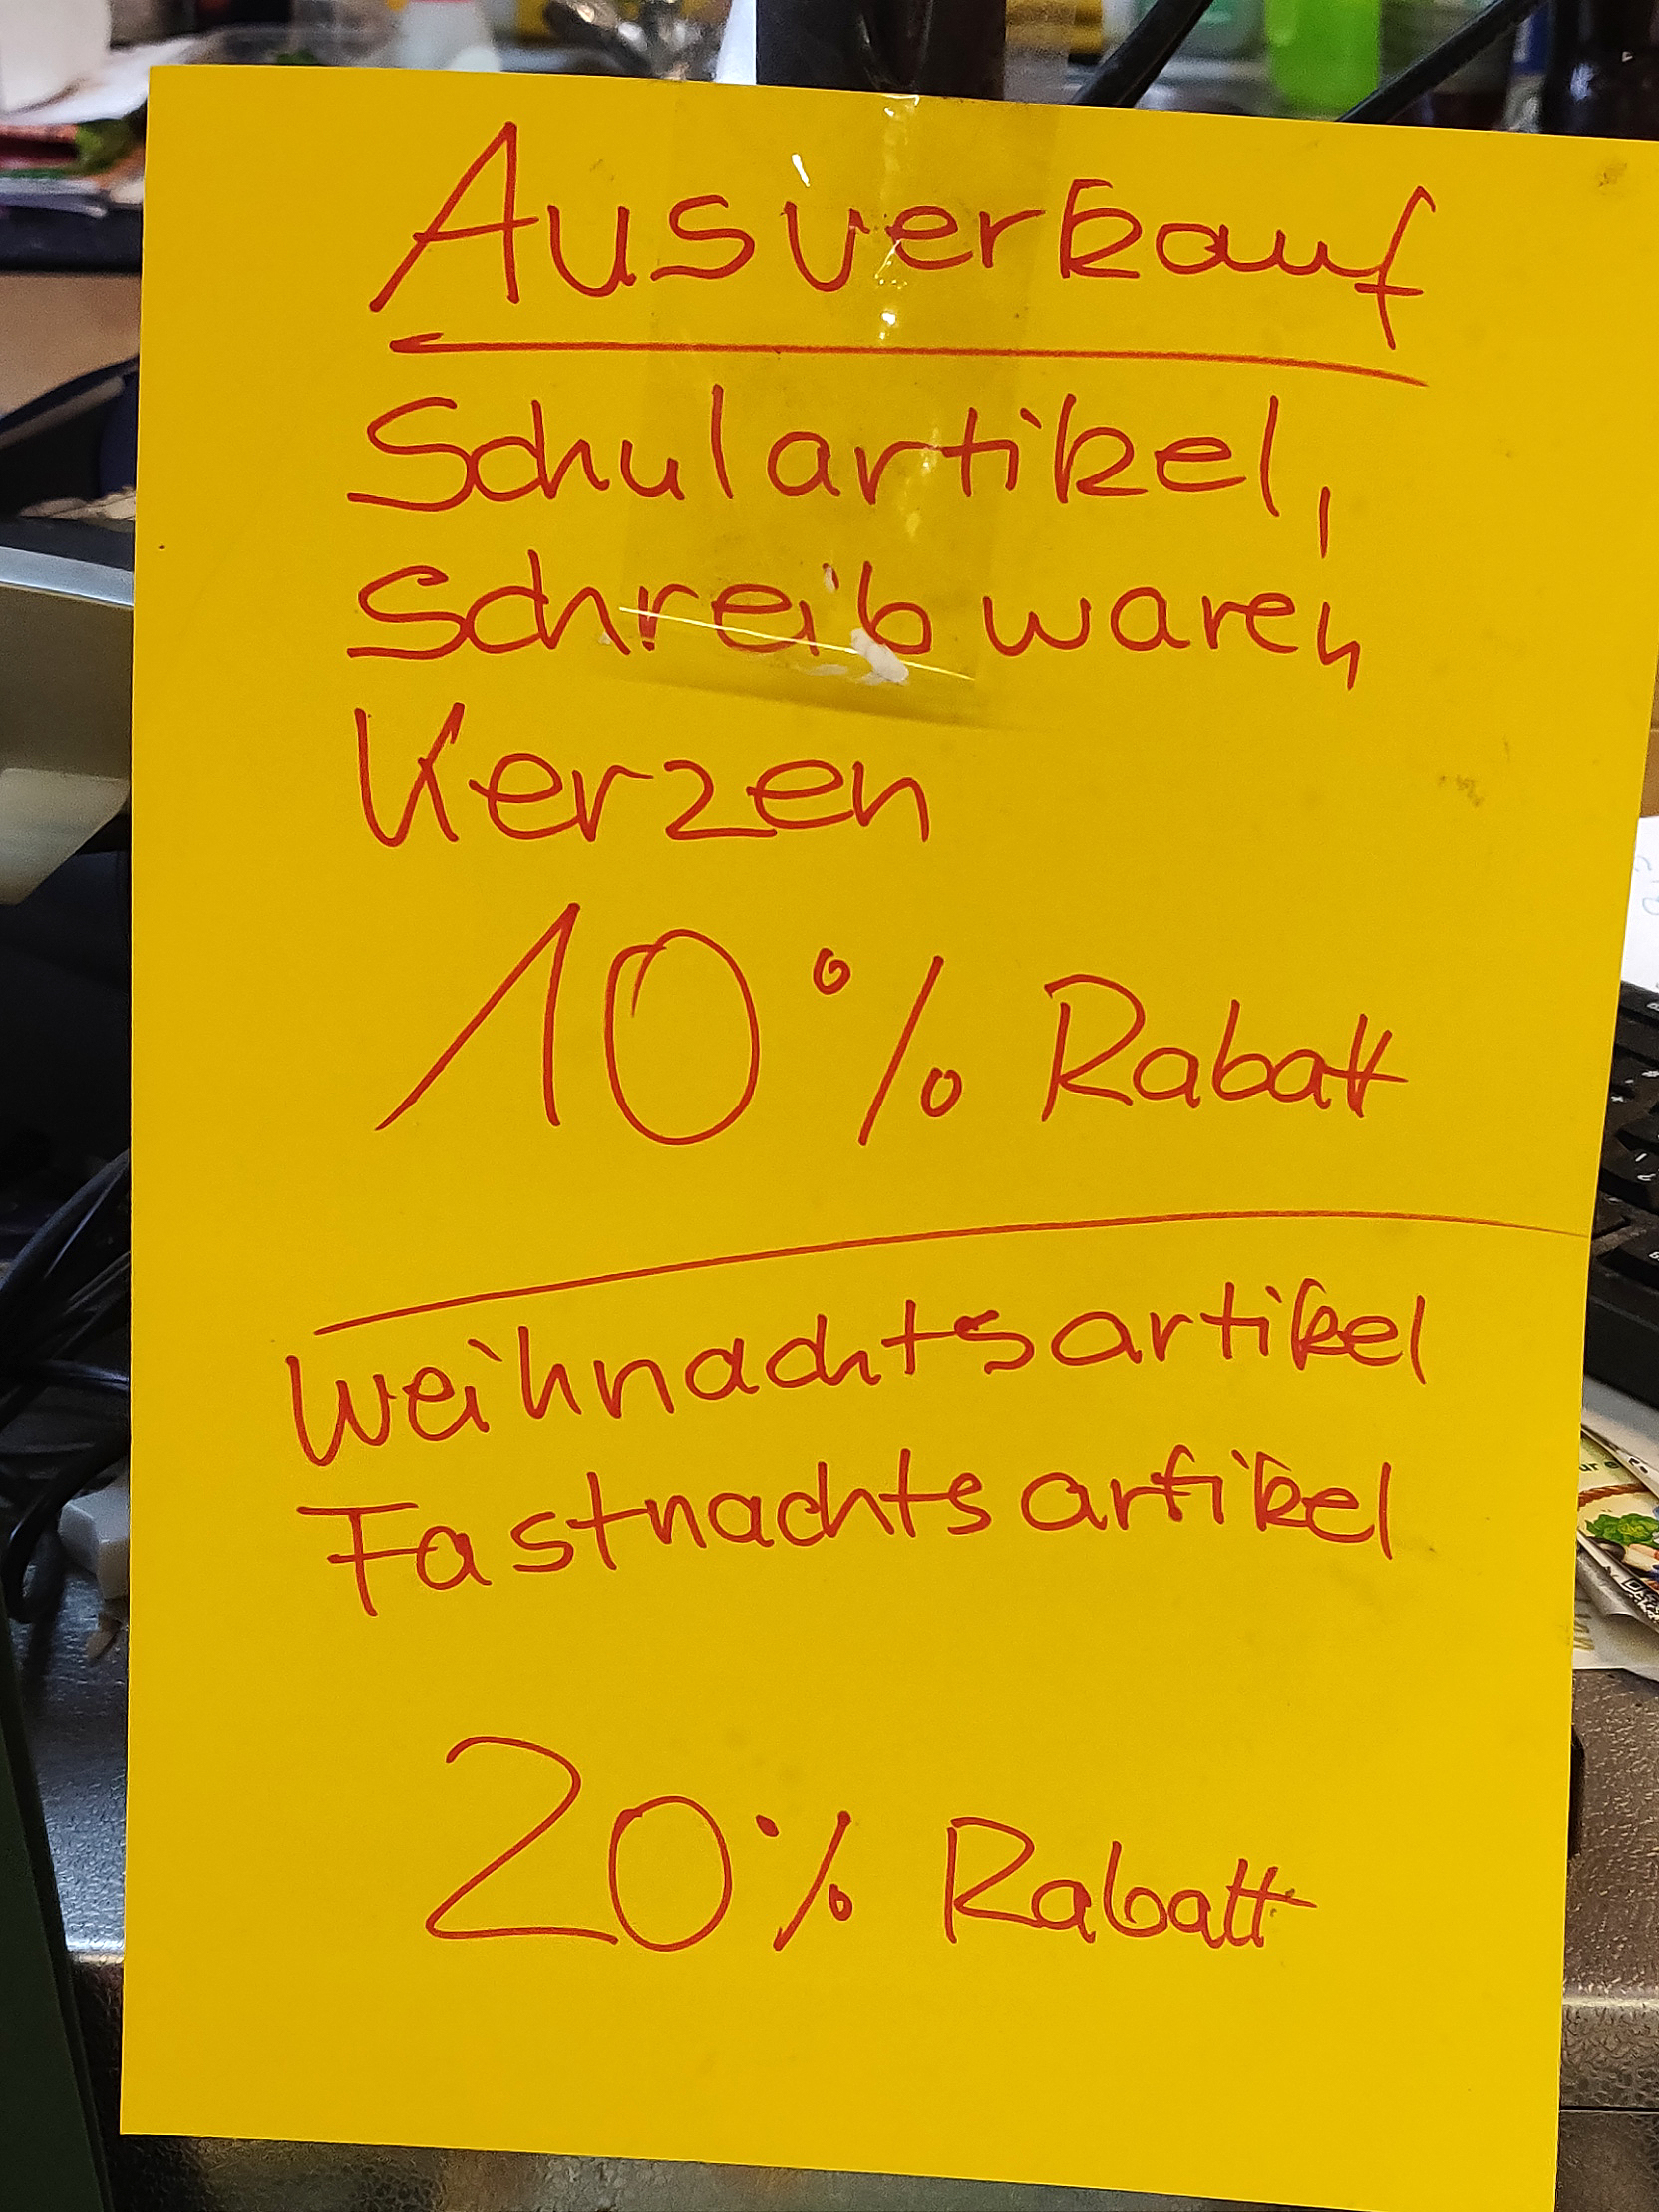 Ausverkauf
Schulartikel,
Schreibwaren
Kerzen
10% Rabatt
Weihnachtsartikel
Fastnachtsartikel
20% Rabatt